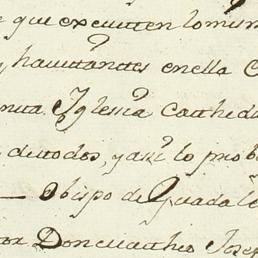 que executen lo mism
havitantes en ella C
Iglesia Cathed
de todos, y asi lo prob
Obispo de Guadal
Don